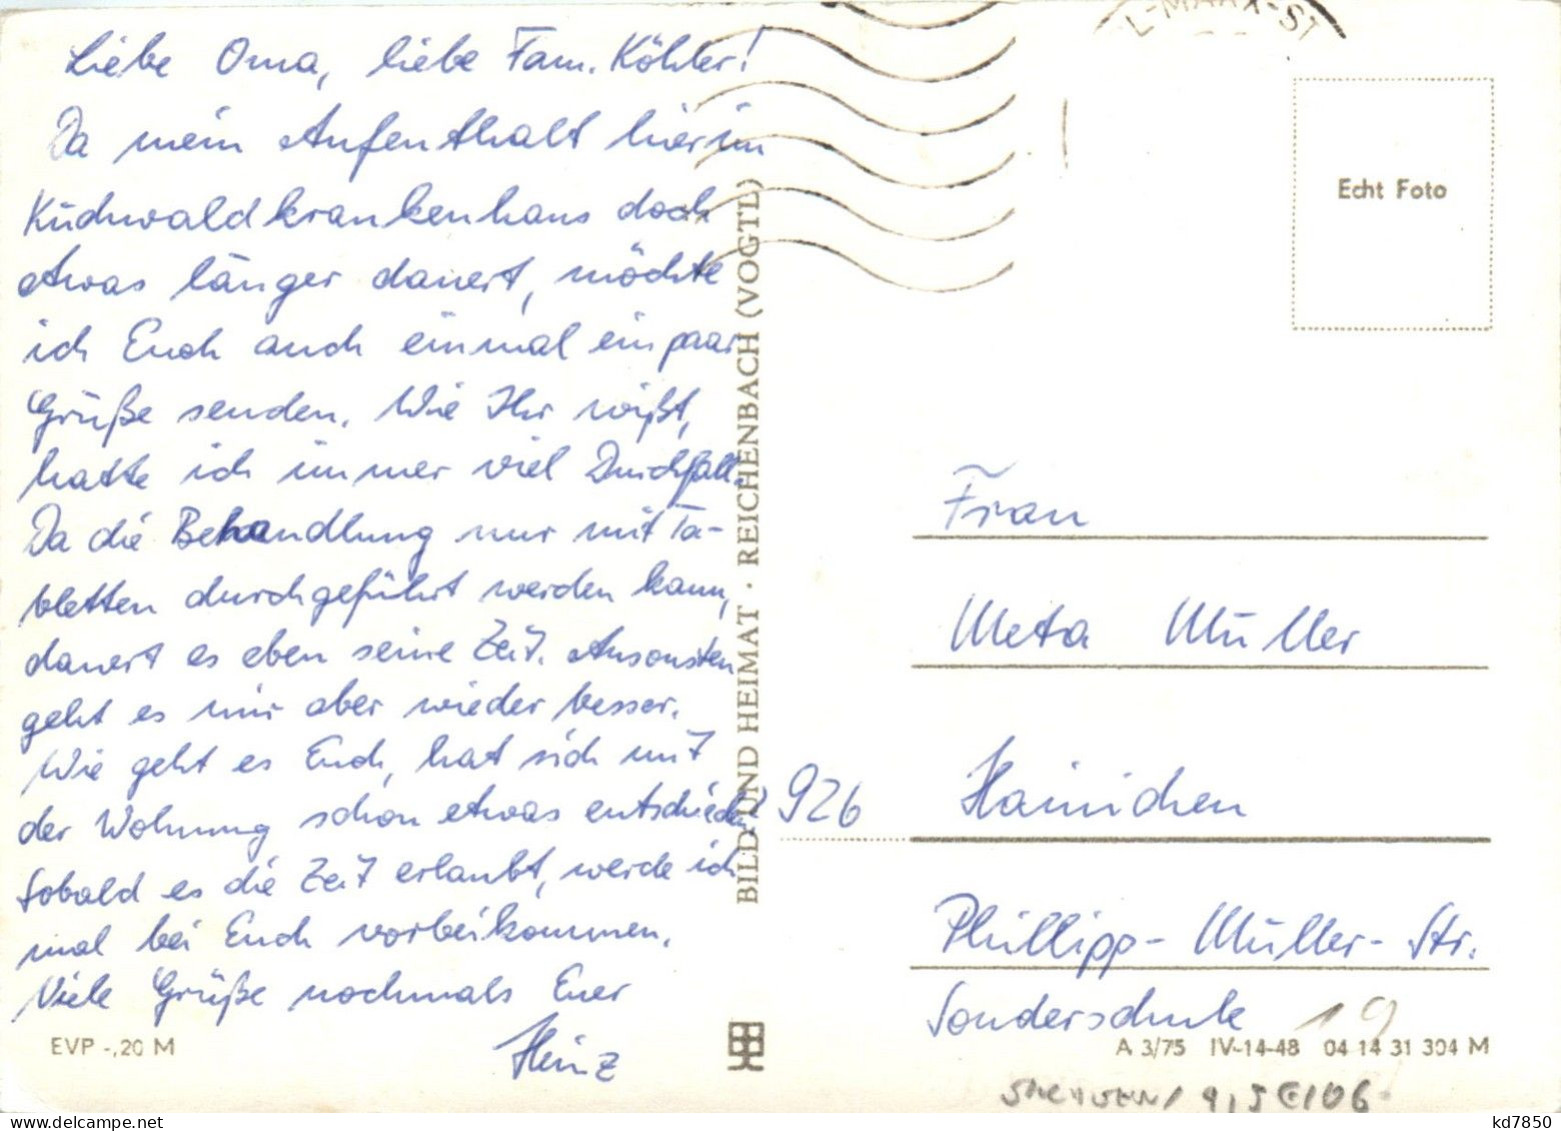 Liebe Oma, liebe Fam. Köhler!
Da mein Aufenthalt hier im
Küchwaldkrankenhaus doch
etwas länger dauert, möchte
ich Euch auch einmal ein paar
Grüße senden. Wie Ihr wißt,
hatte ich immer viel Durchfall.
Da die Behandlung nur mit Ta-
bletten durchgeführt werden kann,
dauert es eben seine Zeit. Ansonsten
geht es mir aber wieder besser.
Wie geht es Euch, hat sich mit
der Wohnung schon etwas entschieden?
Sobald es die Zeit erlaubt, werde ich
mal bei Euch vorbeikommen.
Viele Grüße nochmals Euer
Heinz
EVP -,20 M
BILD UND HEIMAT · REICHENBACH (VOGTL)
L-MARX-ST
Echt Foto
Frau
Meta Müller
926 Hainichen
Phillipp-Müller-Str.
Sonderschule 19
A 3/75 IV-14-48 04 14 31 304 M
kd7850